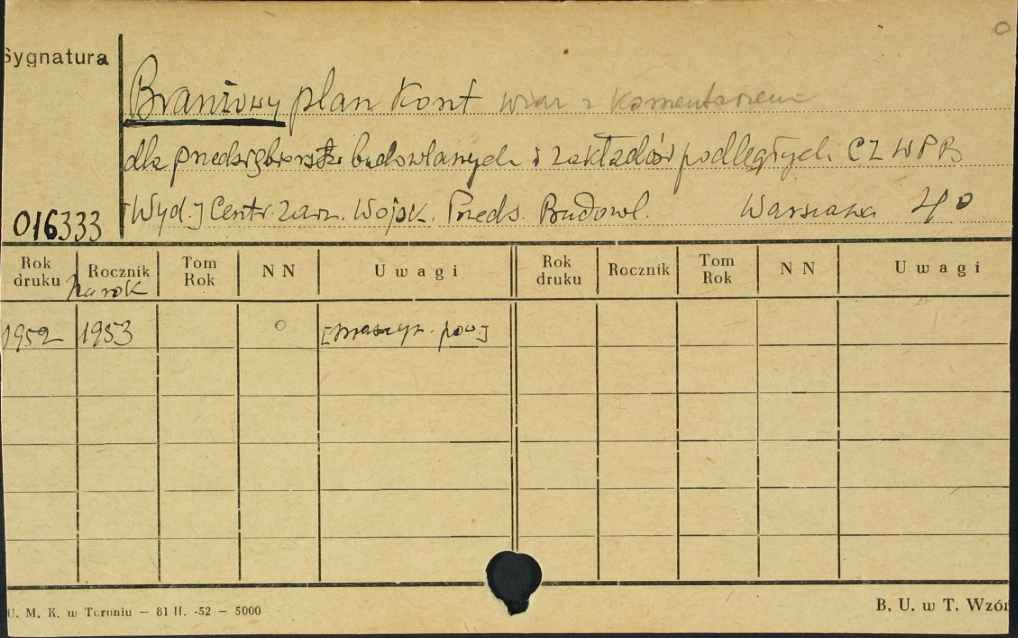 Sygnatura
Branżowy plan kont wraz z komentarzem
dla przedsiębiorstw budowlanych i zakładów podległych CZWPB
016333 [Wyd.] Centr. Zarz. Wojsk. Przeds. Budowl. Warszawa 4°
Rok druku Rocznik Tom Rok NN Uwagi Rok druku Rocznik Tom Rok NN Uwagi
Na rok
1952 1953 [maszyn. pow]
U. M. K. w Toruniu — 81 II. -52 — 5000 B. U. w T. Wzór